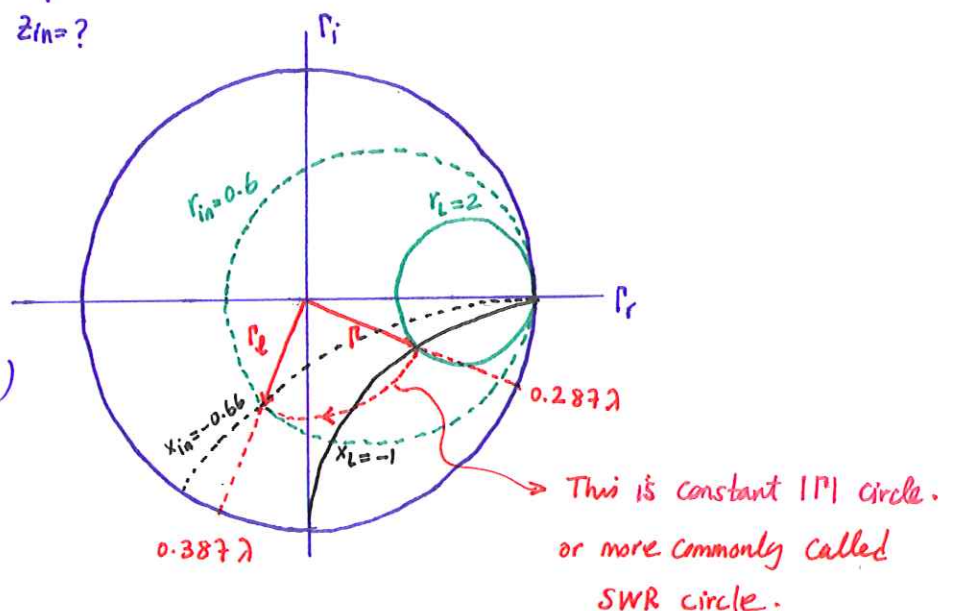 Zin=?
Γi
rin=0.6
rL=2
Γr
Γℓ
Γ
)
0.287λ
xin=-0.66
xL=-1
0.387λ
This is constant |Γ| circle.
or more commonly called
SWR circle.